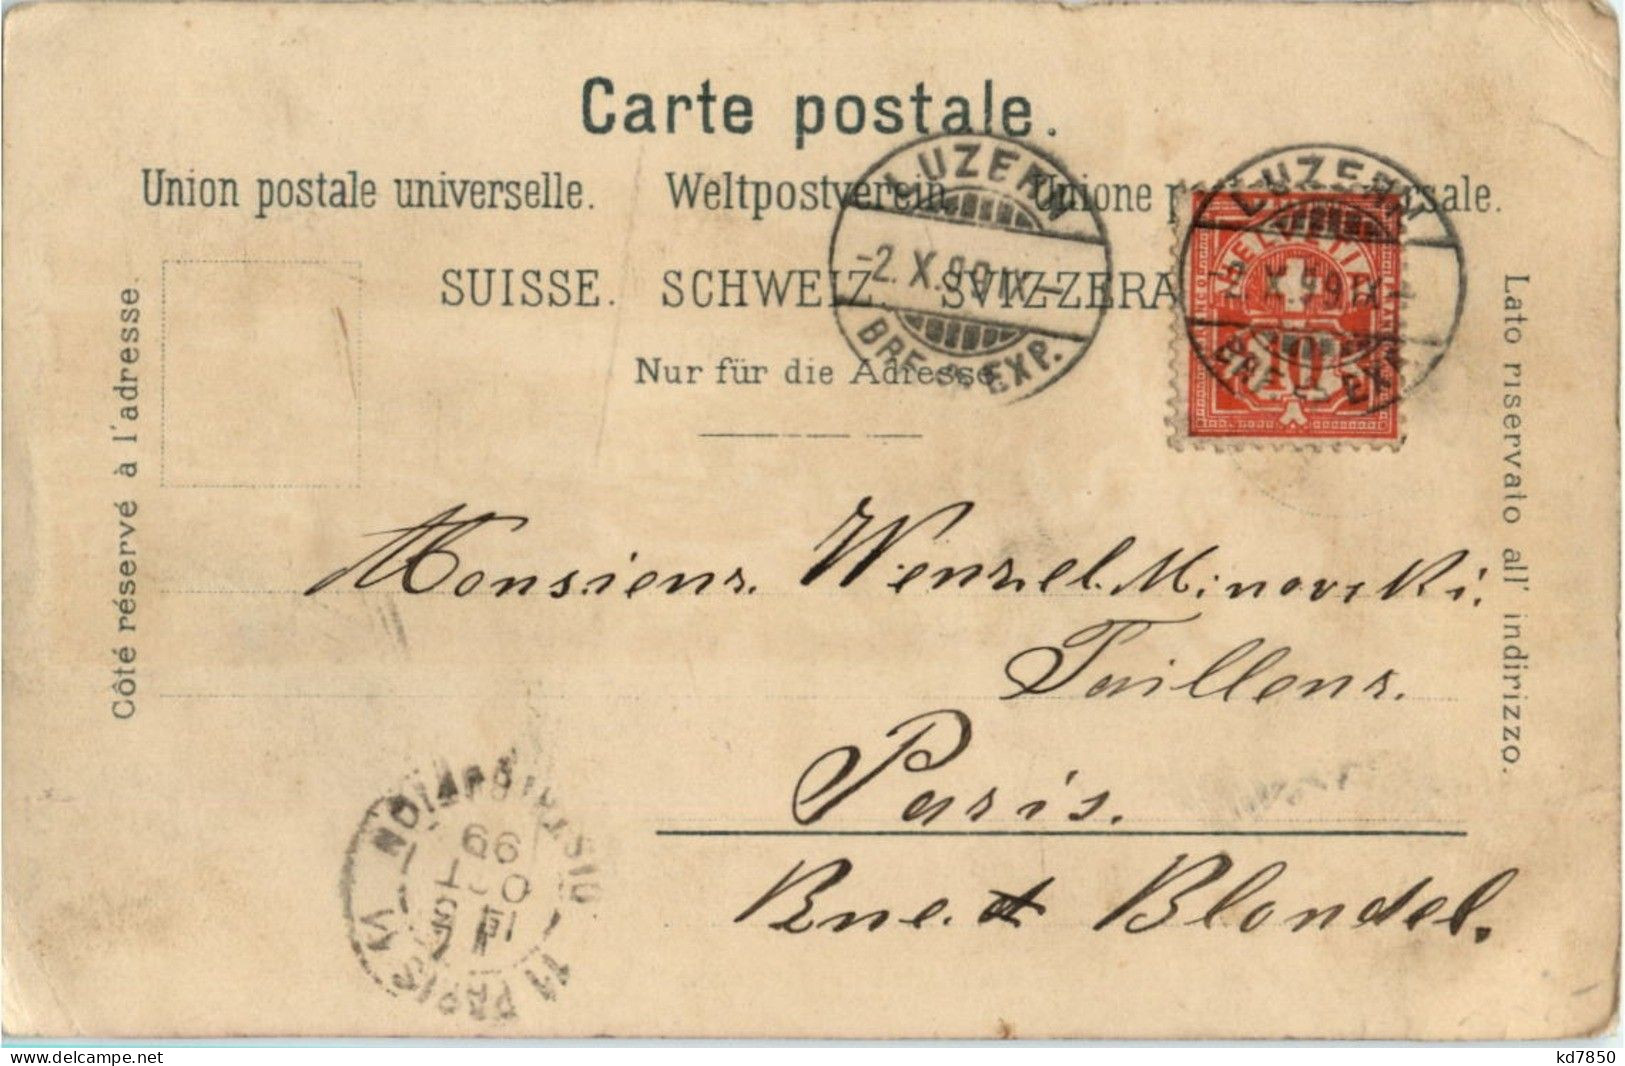 Carte postale.
Union postale universelle. Weltpostverein. Unione postale universale.
SUISSE. SCHWEIZ. SVIZZERA
Nur für die Adresse
Côté réservé à l'adresse.
Lato riservato all' indirizzo.
LUZERN
-2.X.99.IX-
BRF. EXP.
LUZERN
-2.X.99.IX-
BRF. EXP.
HELVETIA
10
Monsieur. Wenzel. Minovski.
Tailleur.
Paris.
Rue. Blondel.
PARIS
DISTRIBUTION
OCT
99
kd7850